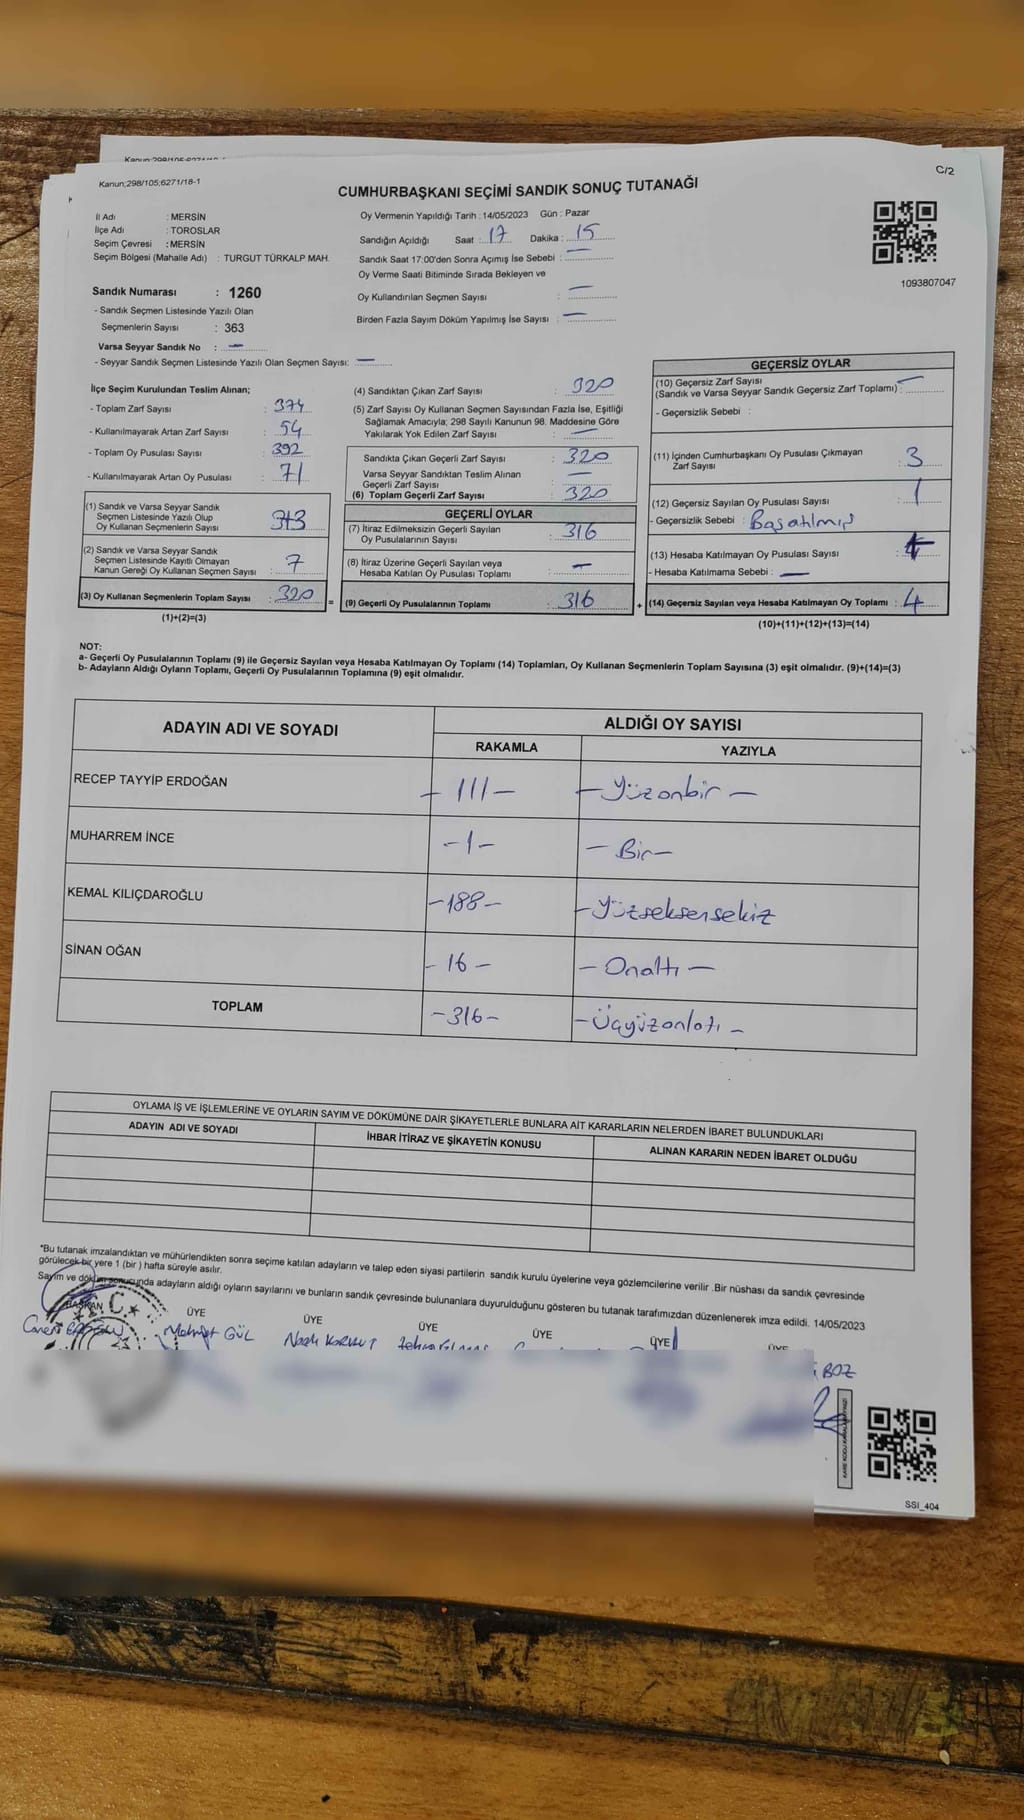 Kanun;298/105;6271/18-1
C/2
CUMHURBAŞKANI SEÇİMİ SANDIK SONUÇ TUTANAĞI
İl Adı : MERSİN
İlçe Adı : TOROSLAR
Seçim Çevresi : MERSİN
Seçim Bölgesi (Mahalle Adı) : TURGUT TÜRKALP MAH.
Sandık Numarası : 1260
- Sandık Seçmen Listesinde Yazılı Olan
Seçmenlerin Sayısı : 363
Varsa Seyyar Sandık No : —
- Seyyar Sandık Seçmen Listesinde Yazılı Olan Seçmen Sayısı: —
Oy Vermenin Yapıldığı Tarih : 14/05/2023 Gün : Pazar
Sandığın Açıldığı Saat : 17 Dakika : 15
Sandık Saat 17:00'den Sonra Açımış İse Sebebi : —
Oy Verme Saati Bitiminde Sırada Bekleyen ve
Oy Kullandırılan Seçmen Sayısı : —
Birden Fazla Sayım Döküm Yapılmış İse Sayısı : —
1093807047
İlçe Seçim Kurulundan Teslim Alınan;
- Toplam Zarf Sayısı : 374
- Kullanılmayarak Artan Zarf Sayısı : 54
- Toplam Oy Pusulası Sayısı : 392
- Kullanılmayarak Artan Oy Pusulası : 71
(1) Sandık ve Varsa Seyyar Sandık
Seçmen Listesinde Yazılı Olup
Oy Kullanan Seçmenlerin Sayısı : 313
(2) Sandık ve Varsa Seyyar Sandık
Seçmen Listesinde Kayıtlı Olmayan
Kanun Gereği Oy Kullanan Seçmen Sayısı : 7
(3) Oy Kullanan Seçmenlerin Toplam Sayısı : 320
(1)+(2)=(3)
(4) Sandıktan Çıkan Zarf Sayısı : 320
(5) Zarf Sayısı Oy Kullanan Seçmen Sayısından Fazla İse, Eşitliği
Sağlamak Amacıyla; 298 Sayılı Kanunun 98. Maddesine Göre
Yakılarak Yok Edilen Zarf Sayısı : —
Sandıkta Çıkan Geçerli Zarf Sayısı : 320
Varsa Seyyar Sandıktan Teslim Alınan
Geçerli Zarf Sayısı : —
(6) Toplam Geçerli Zarf Sayısı : 320
GEÇERLİ OYLAR
(7) İtiraz Edilmeksizin Geçerli Sayılan
Oy Pusulalarının Sayısı : 316
(8) İtiraz Üzerine Geçerli Sayılan veya
Hesaba Katılan Oy Pusulası Toplamı : —
= (9) Geçerli Oy Pusulalarının Toplamı : 316
GEÇERSİZ OYLAR
(10) Geçersiz Zarf Sayısı
(Sandık ve Varsa Seyyar Sandık Geçersiz Zarf Toplamı) : —
- Geçersizlik Sebebi :
(11) İçinden Cumhurbaşkanı Oy Pusulası Çıkmayan
Zarf Sayısı : 3
(12) Geçersiz Sayılan Oy Pusulası Sayısı : 1
- Geçersizlik Sebebi : Boş atılmış
(13) Hesaba Katılmayan Oy Pusulası Sayısı :
- Hesaba Katılmama Sebebi : —
+ (14) Geçersiz Sayılan veya Hesaba Katılmayan Oy Toplamı : 4
(10)+(11)+(12)+(13)=(14)
NOT:
a- Geçerli Oy Pusulalarının Toplamı (9) ile Geçersiz Sayılan veya Hesaba Katılmayan Oy Toplamı (14) Toplamları, Oy Kullanan Seçmenlerin Toplam Sayısına (3) eşit olmalıdır. (9)+(14)=(3)
b- Adayların Aldığı Oyların Toplamı, Geçerli Oy Pusulalarının Toplamına (9) eşit olmalıdır.
ADAYIN ADI VE SOYADI
ALDIĞI OY SAYISI
RAKAMLA YAZIYLA
RECEP TAYYİP ERDOĞAN - 111 - - Yüzonbir -
MUHARREM İNCE - 1 - - Bir -
KEMAL KILIÇDAROĞLU - 188 - - Yüzseksensekiz
SİNAN OĞAN - 16 - - Onaltı -
TOPLAM - 316 - - Üçyüzonaltı -
OYLAMA İŞ VE İŞLEMLERİNE VE OYLARIN SAYIM VE DÖKÜMÜNE DAİR ŞİKAYETLERLE BUNLARA AİT KARARLARIN NELERDEN İBARET BULUNDUKLARI
ADAYIN ADI VE SOYADI İHBAR İTİRAZ VE ŞİKAYETİN KONUSU ALINAN KARARIN NEDEN İBARET OLDUĞU
*Bu tutanak imzalandıktan ve mühürlendikten sonra seçime katılan adayların ve talep eden siyasi partilerin sandık kurulu üyelerine veya gözlemcilerine verilir .Bir nüshası da sandık çevresinde
görülecek bir yere 1 (bir ) hafta süreyle asılır.
Sayım ve döküm sonucunda adayların aldığı oyların sayılarını ve bunların sandık çevresinde bulunanlara duyurulduğunu gösteren bu tutanak tarafımızdan düzenlenerek imza edildi. 14/05/2023
BAŞKAN ÜYE ÜYE ÜYE ÜYE ÜYE ÜYE
Mehmet GÜL
BOZ
SSI_404